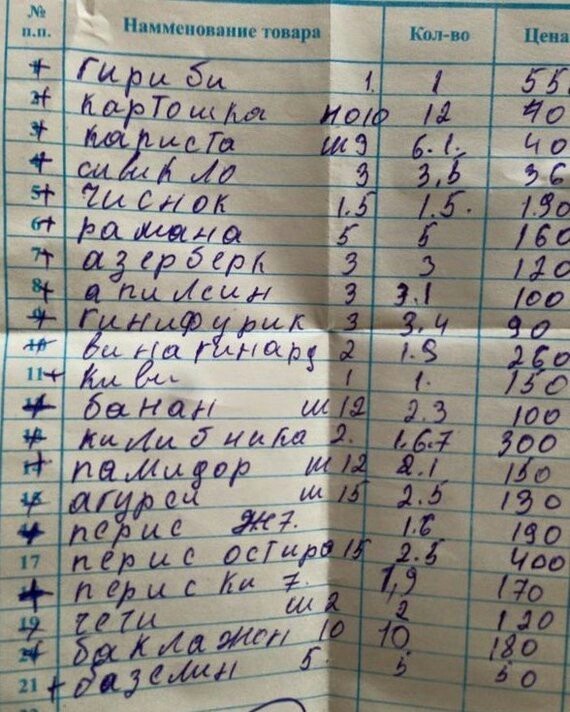 № п.п. Наmменование товара Кол-во Цена
1 гириби 1. 1 55
2 картошка 1010 12 40
3 кариста ш9 6.1. 40
4 сивикло 3 3,5 36
5 чиснок 1.5 1.5. 190
6 рамана 5 5 160
7 азерберк 3 3 120
8 апилсин 3 3.1 100
9 гинифурик 3 3.4 90
10 винагинард 2 1.9 260
11 киви 1 1. 150
12 банан ш12 2.3 100
13 килибника 2. 1.6.7 300
14 памидор ш12 2.1 150
15 агурси ш15 2.5 130
16 перис ж7. 1.6 190
17 перис остира 15 2.5 400
18 перис ки 7. 1,9 170
19 чети ш2 2 120
20 баклажон 10 10 180
21 базелин 5. 5 50